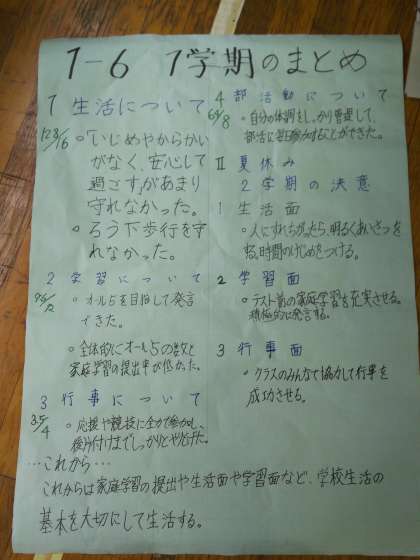 1-6 1学期のまとめ
1 生活について
「いじめやからかい
がなく、安心して
過ごす」があまり
守れなかった。
ろう下歩行を守
れなかった。
2 学習について
オール5を目指して発言
できた。
全体的にオール5の数と
家庭学習の提出率が低かった。
3 行事について
応援や競技に全力で参加し、
後片付けまでしっかりとやれた。
4 部活動について
自分の体調をしっかり管理して、
部活に参加することができた。
II 夏休み
2学期の決意
1 生活面
人にすれちがったら、明るくあいさつを
する。時間のけじめをつける。
2 学習面
テスト前の家庭学習を充実させる。
積極的に発言する。
3 行事面
クラスのみんなで協力して行事を
成功させる。
…これから…
これからは家庭学習の提出や生活面や学習面など、学校生活の
基本を大切にして生活する。